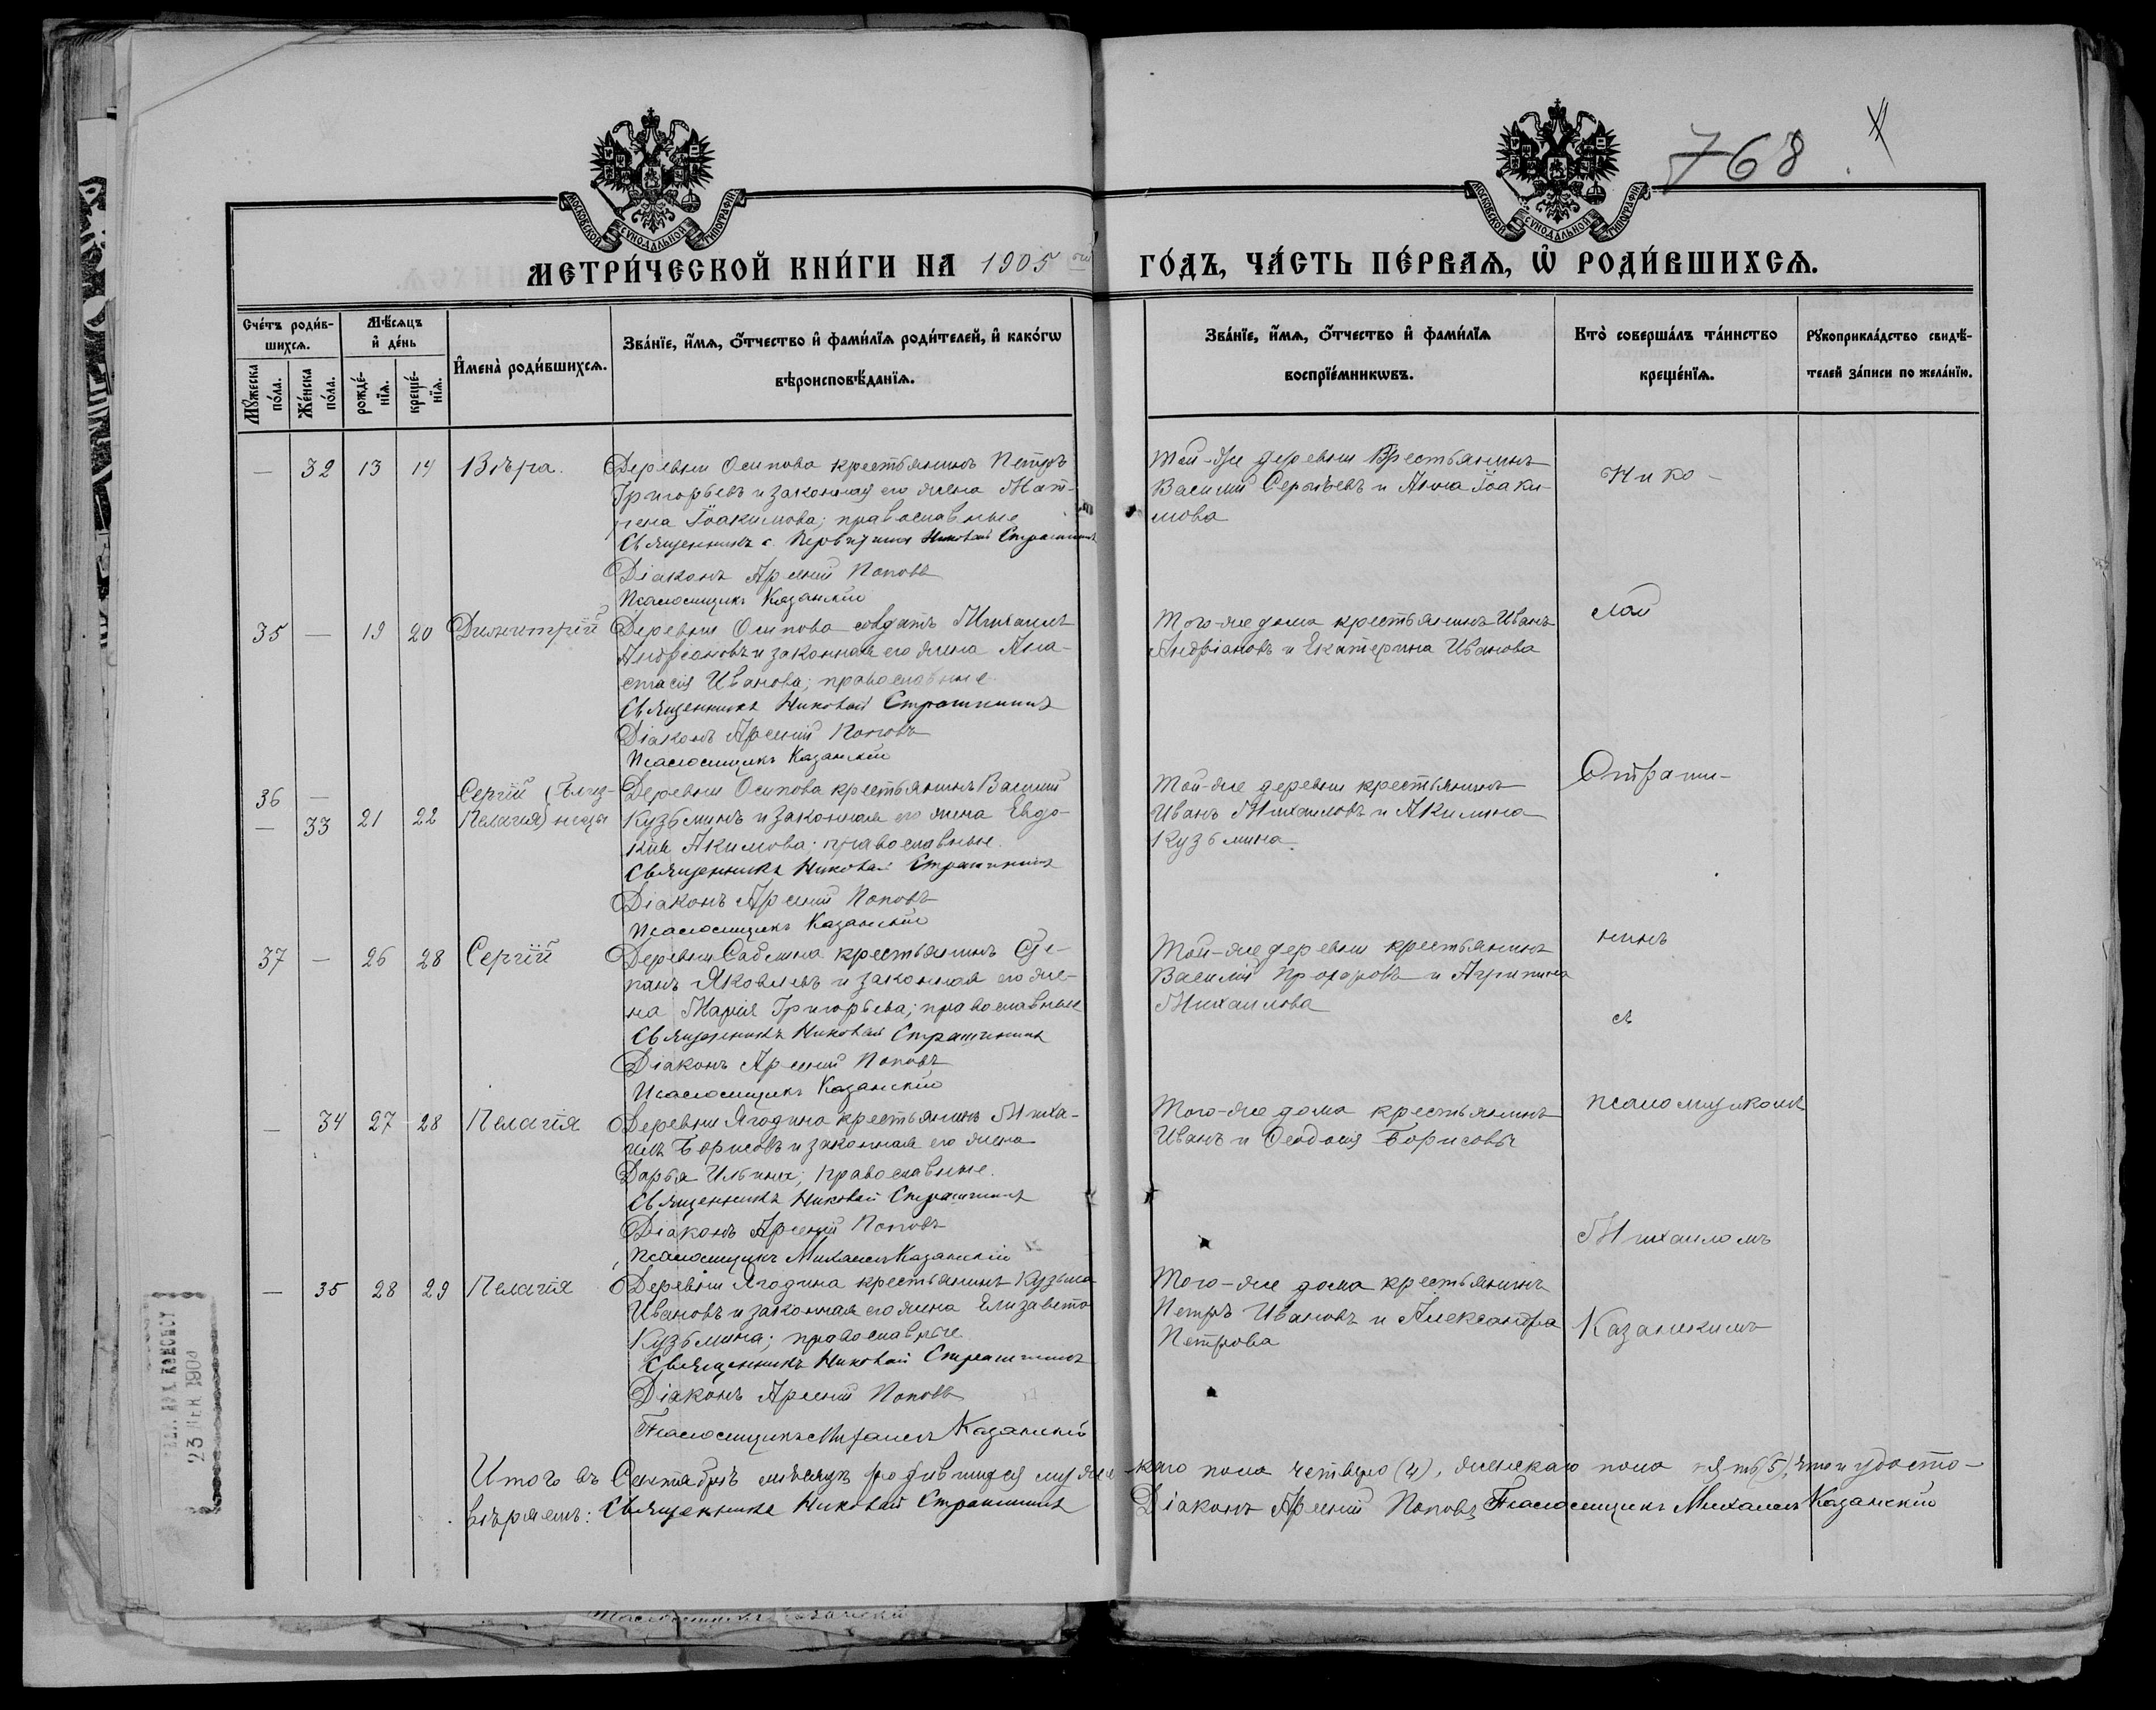 768
МОСКОВСКОЙ СѴНОДАЛЬНОЙ ТИПОГРАФІИ
МОСКОВСКОЙ СѴНОДАЛЬНОЙ ТИПОГРАФІИ
МЕТРИ́ЧЕСКОЙ КНИ́ГИ НА 1905 ый ГО́ДЪ, ЧА́СТЬ ПЕ́РВАЯ, Ѡ РОДИ́ВШИХСЯ.
Сче́тъ роди́в-
шихся.
Мѣ́сяцъ
и де́нь
Мꙋ́жеска
по́ла.
Же́нска
по́ла.
рожде́-
нїя.
креще́-
нїя.
Имена̀ роди́вшихся.
Зва́нїе, и́мя, о́тчество и фами́лїя роди́телей, и како́гѡ
вѣроисповѣ́данїя.
Зва́нїе, и́мя, о́тчество и фами́лїя
воспрїе́мникѡвъ.
Кто̀ соверша́лъ та́инство
креще́нїя.
Рꙋкоприкла́дство свидѣ́-
телей за́писи по жела́нїю.
— 32 13 14 Вѣра.
Деревни Осипова крестьянинъ Петръ
Григорьевъ и законная его жена Мат-
рена Іоакимова; православные
Священникъ с. Николай Страшнинъ
Діаконъ Арсеній Поповъ
Псаломщикъ Казанскій
Той-же деревни Крестьянинъ
Василій Сергѣевъ и Анна Іоаки-
мова
Нико-
35 — 19 20 Димитрій
Деревни Осипова солдатъ Михаилъ
Андріановъ и законная его жена Ана-
стасія Иванова; православные
Священникъ Николай Страшнинъ
Діаконъ Арсеній Поповъ
Псаломщикъ Казанскій
Того-же дома крестьянинъ Иванъ
Андріановъ и Екатерина Иванова
лай
36 — Сергій (близ-
— 33 21 22 Пелагія) нецы
Деревни Осипова крестьянинъ Василій
Кузьминъ и законная его жена Евдо-
кія Акимова; православные.
Священникъ Николай Страшнинъ
Діаконъ Арсеній Поповъ
Псаломщикъ Казанскій
Той-же деревни крестьянинъ
Иванъ Михаиловъ и Акилина
Кузьмина.
Страш-
37 — 26 28 Сергій
Деревни Саблина крестьянинъ Сте-
панъ Яковлевъ и законная его же-
на Марія Григорьева; православные
Священникъ Николай Страшнинъ
Діаконъ Арсеній Поповъ
Псаломщикъ Казанскій
Той-же деревни крестьянинъ
Василій Прохоровъ и Агрипина
Михаилова
нинъ
съ
— 34 27 28 Пелагія
Деревни Ягодина крестьянинъ Миха-
илъ Борисовъ и законная его жена
Дарья Ильина; православные.
Священникъ Николай Страшнинъ
Діаконъ Арсеній Поповъ
Псаломщикъ Михаилъ Казанскій
Того-же дома крестьянинъ
Иванъ и Ѳеодосія Борисовы
псаломщикомъ
Михаиломъ
— 35 28 29 Пелагія
Деревни Ягодина крестьянинъ Кузьма
Ивановъ и законная его жена Елизавета
Кузьмина; православные
Священникъ Николай Страшнинъ
Діаконъ Арсеній Поповъ
Псаломщикъ Михаилъ Казанскій
Того-же дома крестьянинъ
Петръ Ивановъ и Александра
Петрова
Казанскимъ
Итого въ Сентябрѣ мѣсяцѣ родившихся мужескаго пола четверо (4), женскаго пола пять (5), что и удосто-
вѣряемъ: Священникъ Николай Страшнинъ Діаконъ Арсеній Поповъ Псаломщикъ Михаилъ Казанскій